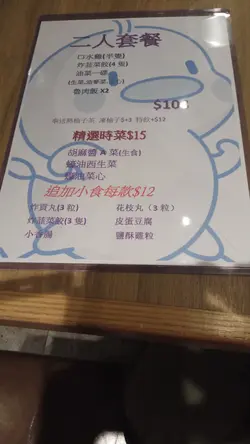 二人套餐
口水雞(半隻)
炸韮菜餃(4隻)
油菜一碟
魯肉飯 X2
$10
精選時菜$15
胡麻醬 A 菜(生食)
蠔油西生菜
菜心
追加小食每款$12
炸貢丸(3粒)
花枝丸(3粒)
炸韮菜餃(3隻)
皮蛋豆腐
小香腸
鹽酥雞粒